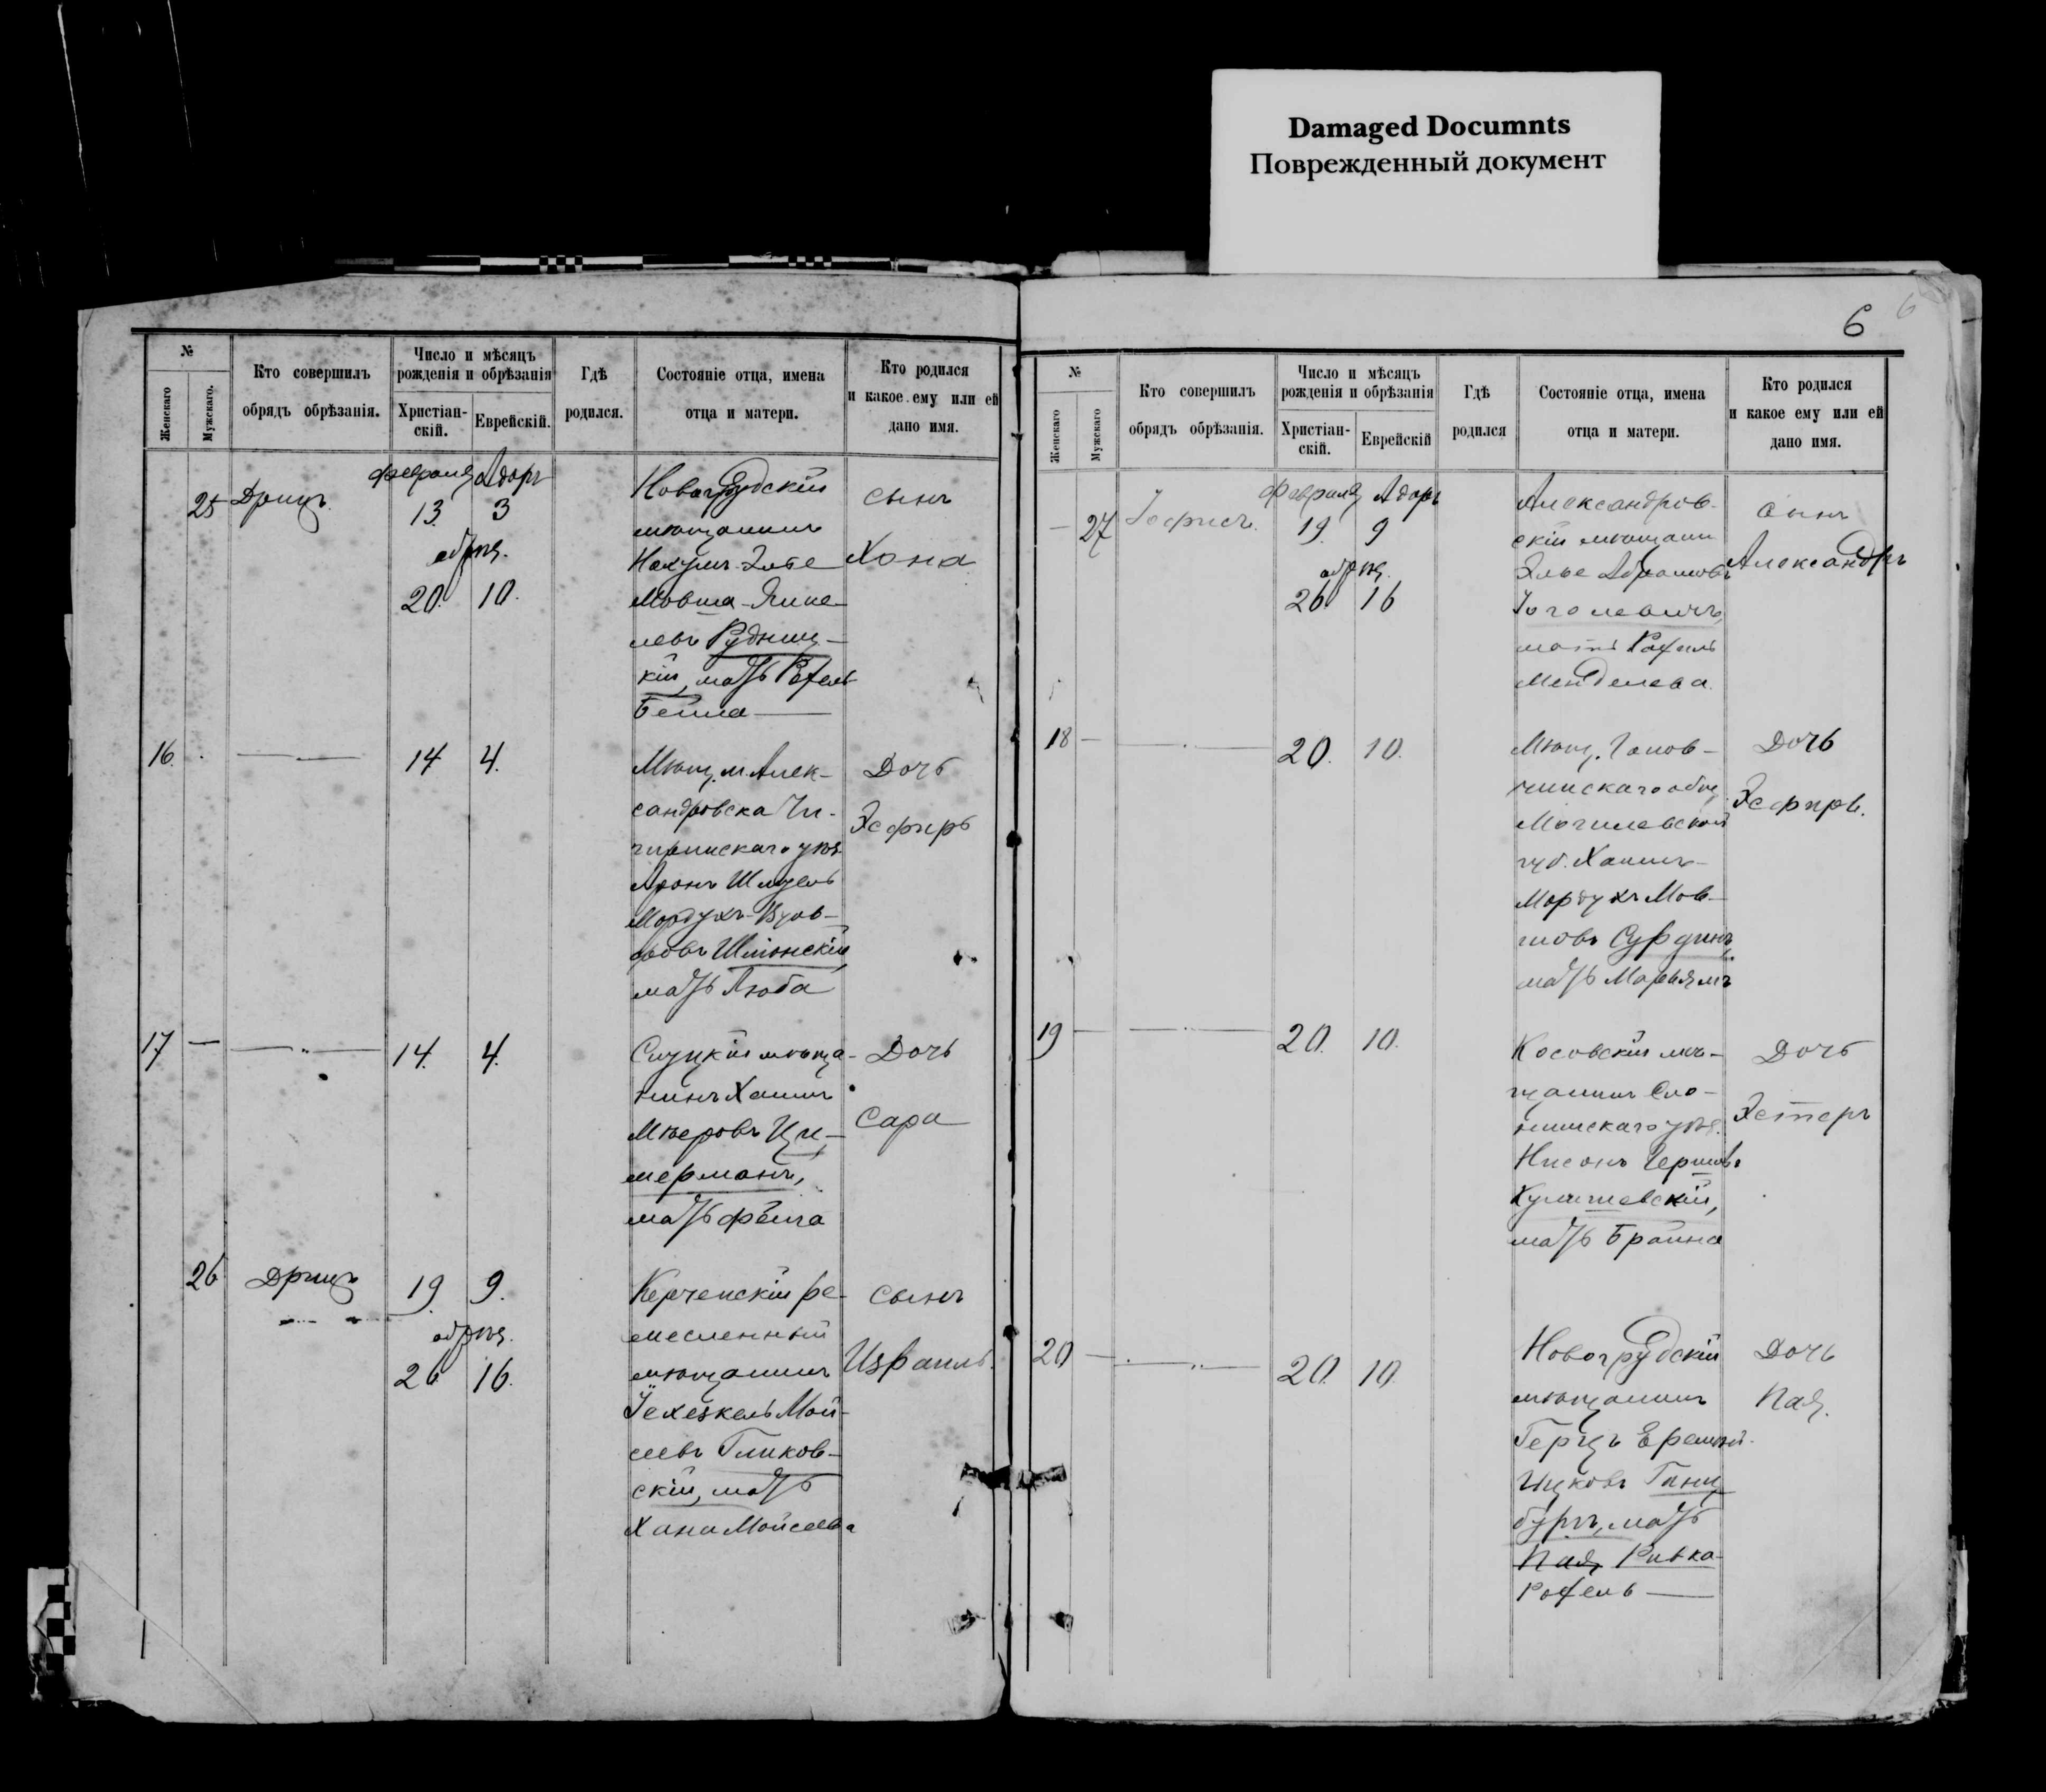 Damaged Documnts
Поврежденный документ
6
№
Женскаго
Мужскаго.
Кто совершилъ
обрядъ обрѣзанія.
Число и мѣсяцъ
рожденія и обрѣзанія
Христіан-
скій.
Еврейскій.
Гдѣ
родился.
Состояніе отца, имена
отца и матери.
Кто родился
и какое ему или ей
дано имя.
февраля Адаръ
25 Дрицъ 13. 3
обрѣз.
20. 10.
Новогрудскій
мѣщанинъ
Нахумъ-Элье
Мовша-Янке-
левъ Рудниц-
кій, мать Рохель
Бейла
сынъ
Хона
16. 14 4.
Мѣщ. м. Алек-
сандровска Чи-
гиринскаго уѣз.
Аронъ Шмуель
Мордухъ-
мать Люба
Дочь
Эсфирь
17 — 14. 4.
Слуцкій мѣща-
нинъ Хаимъ
Мееровъ Ци-
мерманъ,
мать Фейга
Дочь
Сара
26 Дрицъ 19. 9.
обрѣз.
26 16.
Керченскій ре-
месленный
мѣщанинъ
Іехезкель Мой-
сеевъ Гликов-
скій, мать
Хана Мойсеева
сынъ
Израиль.
№
Женскаго
Мужскаго
Кто совершилъ
обрядъ обрѣзанія.
Число и мѣсяцъ
рожденія и обрѣзанія
Христіан-
скій.
Еврейскій
Гдѣ
родился
Состояніе отца, имена
отца и матери.
Кто родился
и какое ему или ей
дано имя.
февраля Адаръ
— 27 Іофисъ. 19. 9
обрѣз.
26 16
Александров-
скій мѣщани
Элье Абрамовъ
мать Рохиль
Менделева.
сынъ
Александръ
18 — 20. 10.
Мѣщ.
общ.
Могилевской
губ. Хаимъ-
Мордухъ Мов-
шовъ Сурдинъ,
мать Марьямъ
Дочь
Эсфирь.
19 — 20. 10.
Косовскій мѣ-
щанинъ Сло-
нимскаго уѣз.
Нисонъ Гершовъ
мать Брайна
Дочь
Эстеръ
20 — 20. 10.
Новогрудскій
мѣщанинъ
Герцъ
Ицковъ Гинц
бургъ, мать
Пая Ривка-
Рохель
Дочь
Пая.